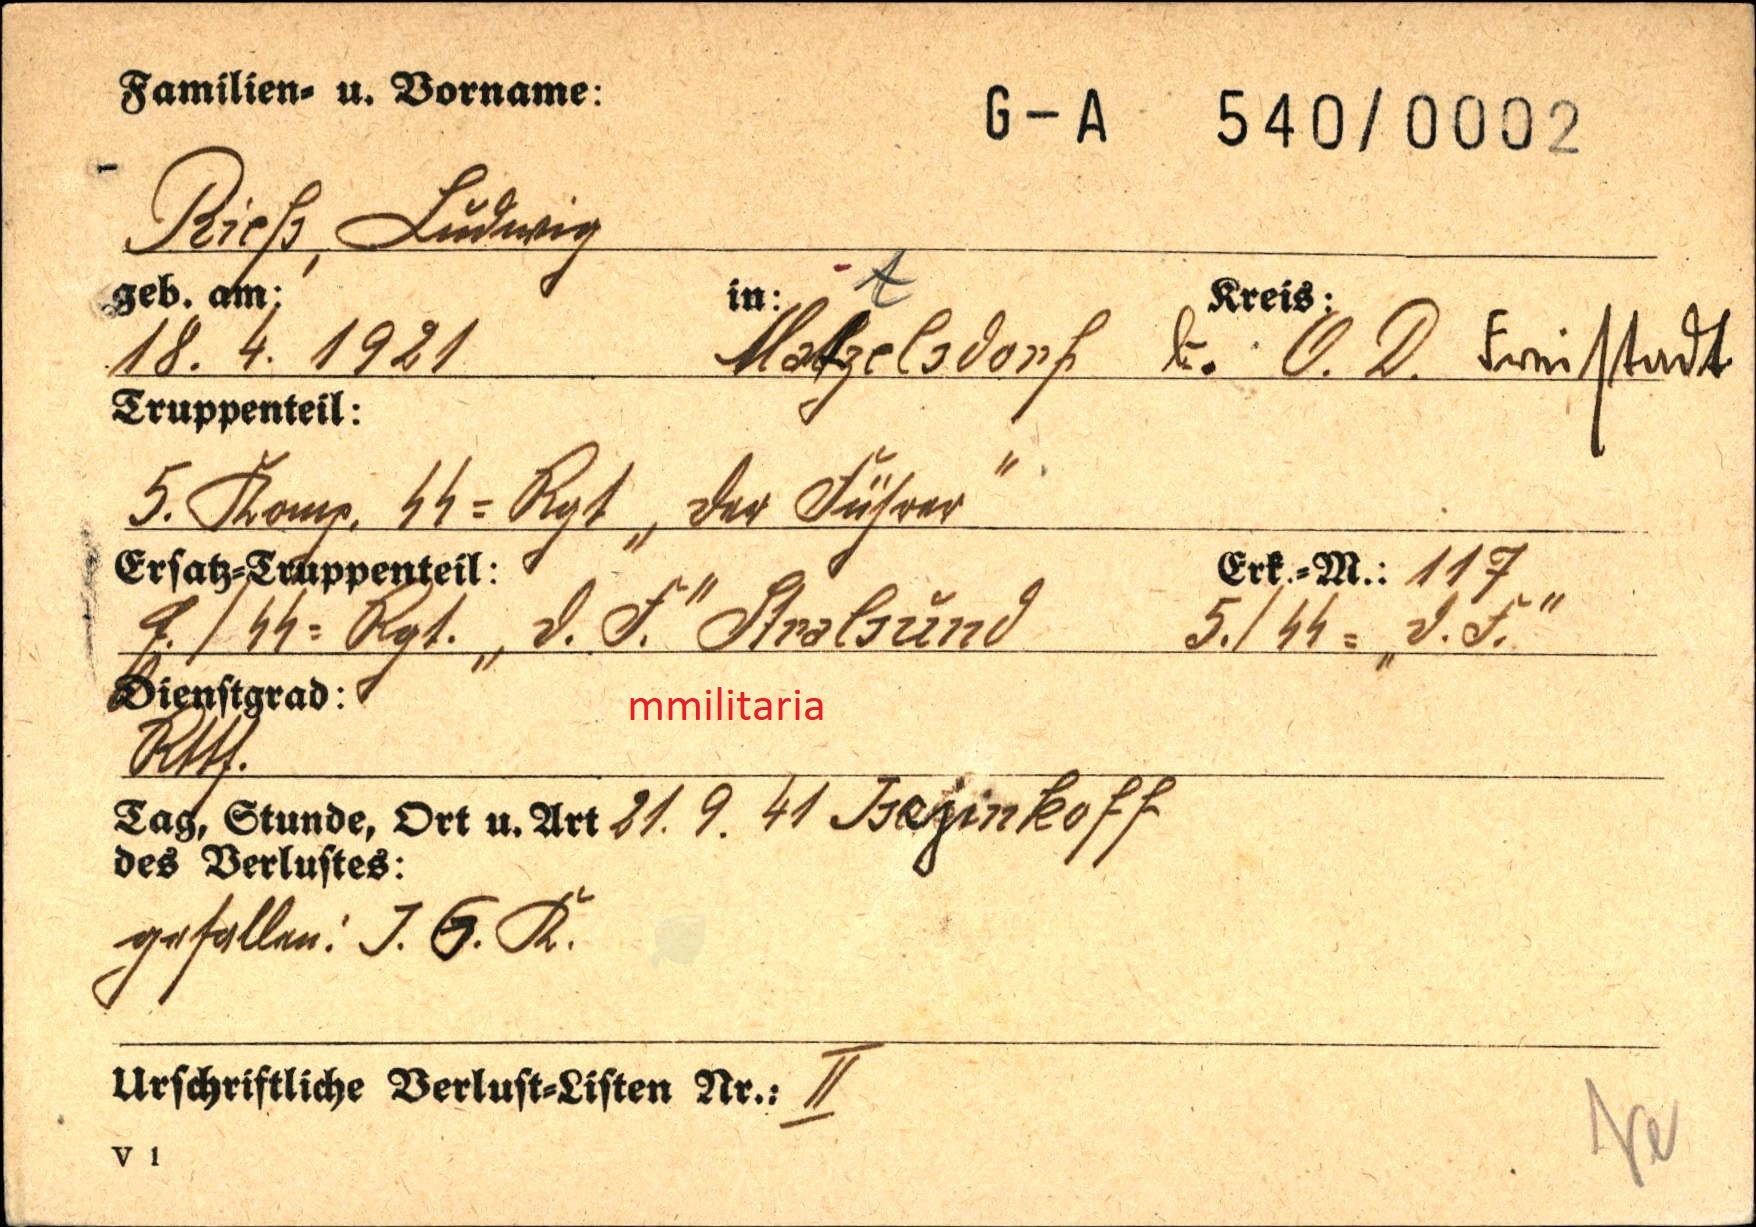 Familien- u. Vorname:
G-A 540/0002
Rieß, Ludwig
geb. am: in: t Kreis:
18. 4. 1921 Matzelsdorf k. O. D. Freistadt
Truppenteil:
5. Komp. SS = Rgt „der Führer"
Ersatz-Truppenteil: Erk.-M.: 117
/ SS = Rgt. „d. F." Stralsund 5./SS = „d. F."
Dienstgrad:
mmilitaria
Rttf.
Tag, Stunde, Ort u. Art 21. 9. 41
des Verlustes:
gefallen: J. G. K.
Urschriftliche Verlust-Listen Nr.: II
V 1